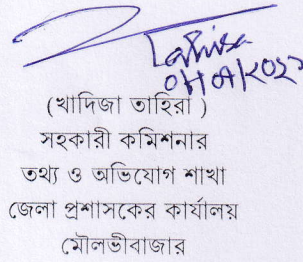 Tahira
(খাদিজা তাহিরা )
সহকারী কমিশনার
তথ্য ও অভিযোগ শাখা
জেলা প্রশাসকের কার্যালয়
মৌলভীবাজার